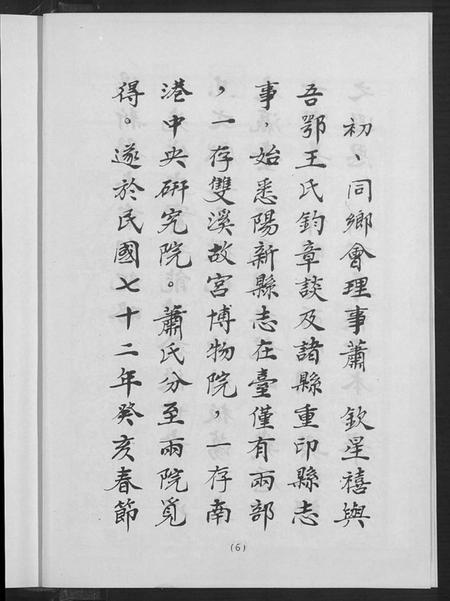 初、同鄉會理事蕭 欽星禧與
吾鄂王氏鈞章談及諸縣重印縣志
事，始悉陽新縣志在臺僅有兩部
，一存雙溪故宮博物院，一存南
港中央研究院。蕭氏分至兩院覓
得。遂於民國七十二年癸亥春節
(6)